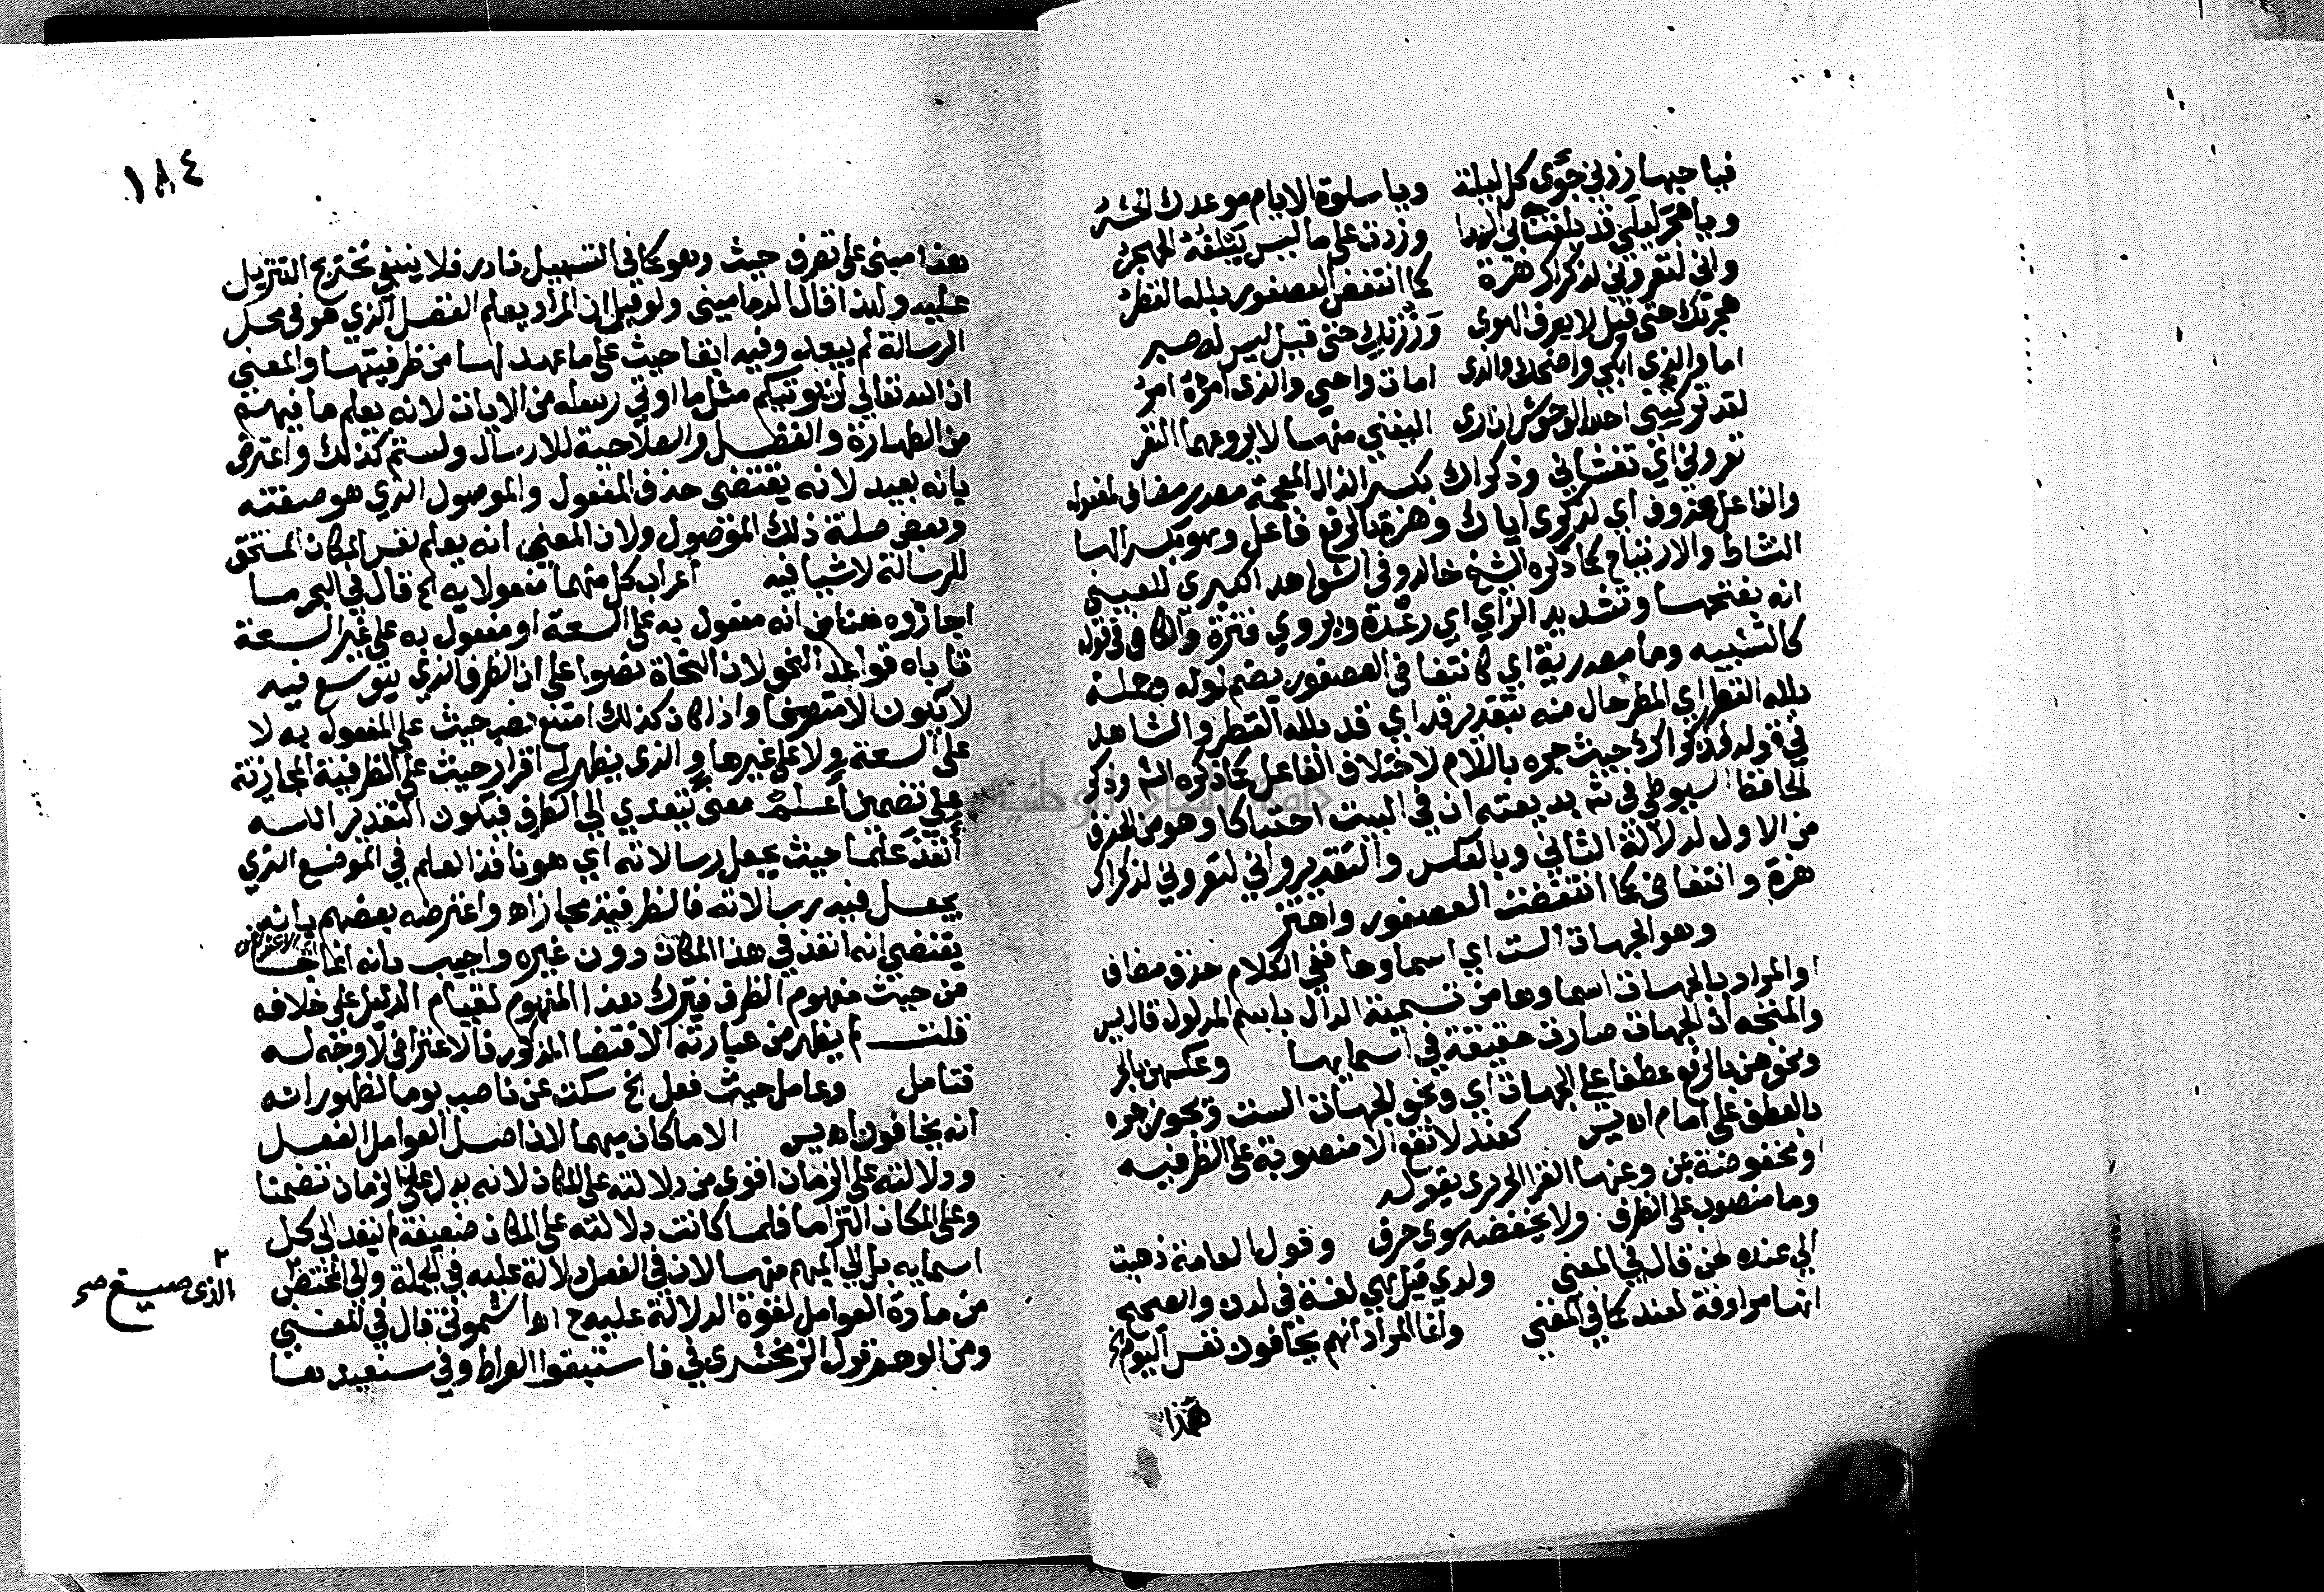 فيا حبها زدني جوى كل ليلة ويا سلوة الايام موعدك الحشر
ويا هجر ليلى قد بلغت بي المدا وزدت على ما ليس يبلغه الهجر
واني لتعروني لذكراك هزة كما انتفض العصفور بلله القطر
هجرتك حتى قيل لا يعرف الهوى وزرتك حتى قيل ليس له صبر
اما والذي ابكى واضحك والذي امات واحيي والذي امره امر
لقد تركتني احسد الوحش ان ارى اليفين منها لا يروعهما النفر
تعروني اي تغشاني وذكراك بكسر الذال المعجمة مصدر مضاف لمفعوله
والفاعل محذوف اي لذكرى اياك وهزة بالرفع فاعل وهو بكسر الها
النشاط والارتياح كما ذكره الشيخ خالد وفي الشواهد الكبرى للعيني
انه بفتحها وتشديد الزاي اي رعدة ويروي فترة والكاف في قوله
كما للتشبيه وما مصدرية اي كانتفاض العصفور بضم اوله وجملة
بلله القطر اي المطر حال منه بتقدير قد اي قد بلله القطر والشاهد
في قوله لذكراك حيث جره باللام لاختلاف الفاعل كما ذكره الش وذكر
الحافظ السيوطي في ش بديعته ان في البيت احتباكا وهو من الحذف
من الاول لدلالة الثاني وبالعكس والتقدير واني لتعروني لذكراك
هزة وانتفاض كما انتفضت العصفور واهتز
وهو الجهات الست اي اسماوها ففي الكلام حذف مضاف
او المراد بالجهات اسماوها من تسمية الدال باسم المدلول قال يس
والمتجه ان الجهات صارت حقيقة في اسمايها وعكسهن بالجر
ونحوهن بالرفع عطفا على الجهات اي ونحو الجهات الست ويجوز جره
بالعطف على امام اه يس كعند لا تقع الا منصوبة على الظرفية
او مخفوضة بمن وعنها الغز الحريري بقوله
وما منصوب على الظرف ولا يخفضه سوى حرف وقول العامة ذهبت
الى عنده لحن قاله في المغني ولدي قيل هي لغة في لدن والصحيح
انها مرادفة لعند كما في المغني وانما المراد انهم يخافون نفس اليوم الخ
هذا
١٨٤
هذا مبني على تصرف حيث وهو كما في التسهيل نادر فلا ينبغي تخريج التنزيل
عليه ولذا قال الدماميني ولو قيل ان المراد يعلم الفضل الذي هو في محل
الرسالة لم يبعد وفيه ابقا حيث على ما عهد لها من ظرفيتها والمعني
ان الله تعالى لن يوتيكم مثل ما اوتي رسله من الايات لانه يعلم ما فيهم
من الطهارة والفضل والصلاحية للارسال ولستم كذلك واعترض
بانه بعيد لانه يقتضي حذف المفعول والموصول الذي هو صفته
وبعض صلة ذلك الموصول ولان المعني انه يعلم نفس المكان المستحق
للرسالة لا شيا فيه اعراب كل منهما مفعولا به الخ قال في البحر ما
اجازوه هنا من انه مفعول به على السعة او مفعول به على غير السعة
تاباه قواعد النحو لان النحاة نصوا على ان الظرف الذي يتوسع فيه
لا يكون الا متصرفا واذا كان كذلك امتنع نصب حيث على المفعول به لا
على السعة ولا على غيرها والذي يظهر لي اقرار حيث على الظرفية المجازية
على تضمين اعلم معني يتعدي الى الظرف فيكون التقدير الله
انفذ علما حيث يجعل رسالاته اي هو نافذ العلم في الموضع الذي
يجعل فيه رسالاته فالظرفية مجاز اه واعترضه بعضهم بانه
يقتضي انه انفذ في هذا المكان دون غيره واجيب بانه انما جا
اي الاعتراض
من حيث مفهوم الظرف فيترك هذا المفهوم لقيام الدليل على خلافه
قلت لم يظهر من عبارته الاقتضا المذكور فالاعتراض لا وجه له
فتامل وعامل حيث فعل الخ سكت عن ناصب يوما لظهور انه
انه يخافون اه يس الا ما كان مبهما لان اصل العوامل الفعل
ودلالته على الزمان اقوى من دلالته على المكان لانه يدل على الزمان تضمنا
وعلى المكان التزاما فلما كانت دلالته على المكان ضعيفة لم يتعد الى كل
اسمايه بل الى المبهم منها لان في الفعل دلالة عليه في الجملة والى المختص
٢ الذي صيغ صح
من مادة العوامل لقوة الدلالة عليه ح اه اشموني قال في المغني
ومن الوهم قول الزمخشري في فاستبقوا الصراط وفي سنعيدها